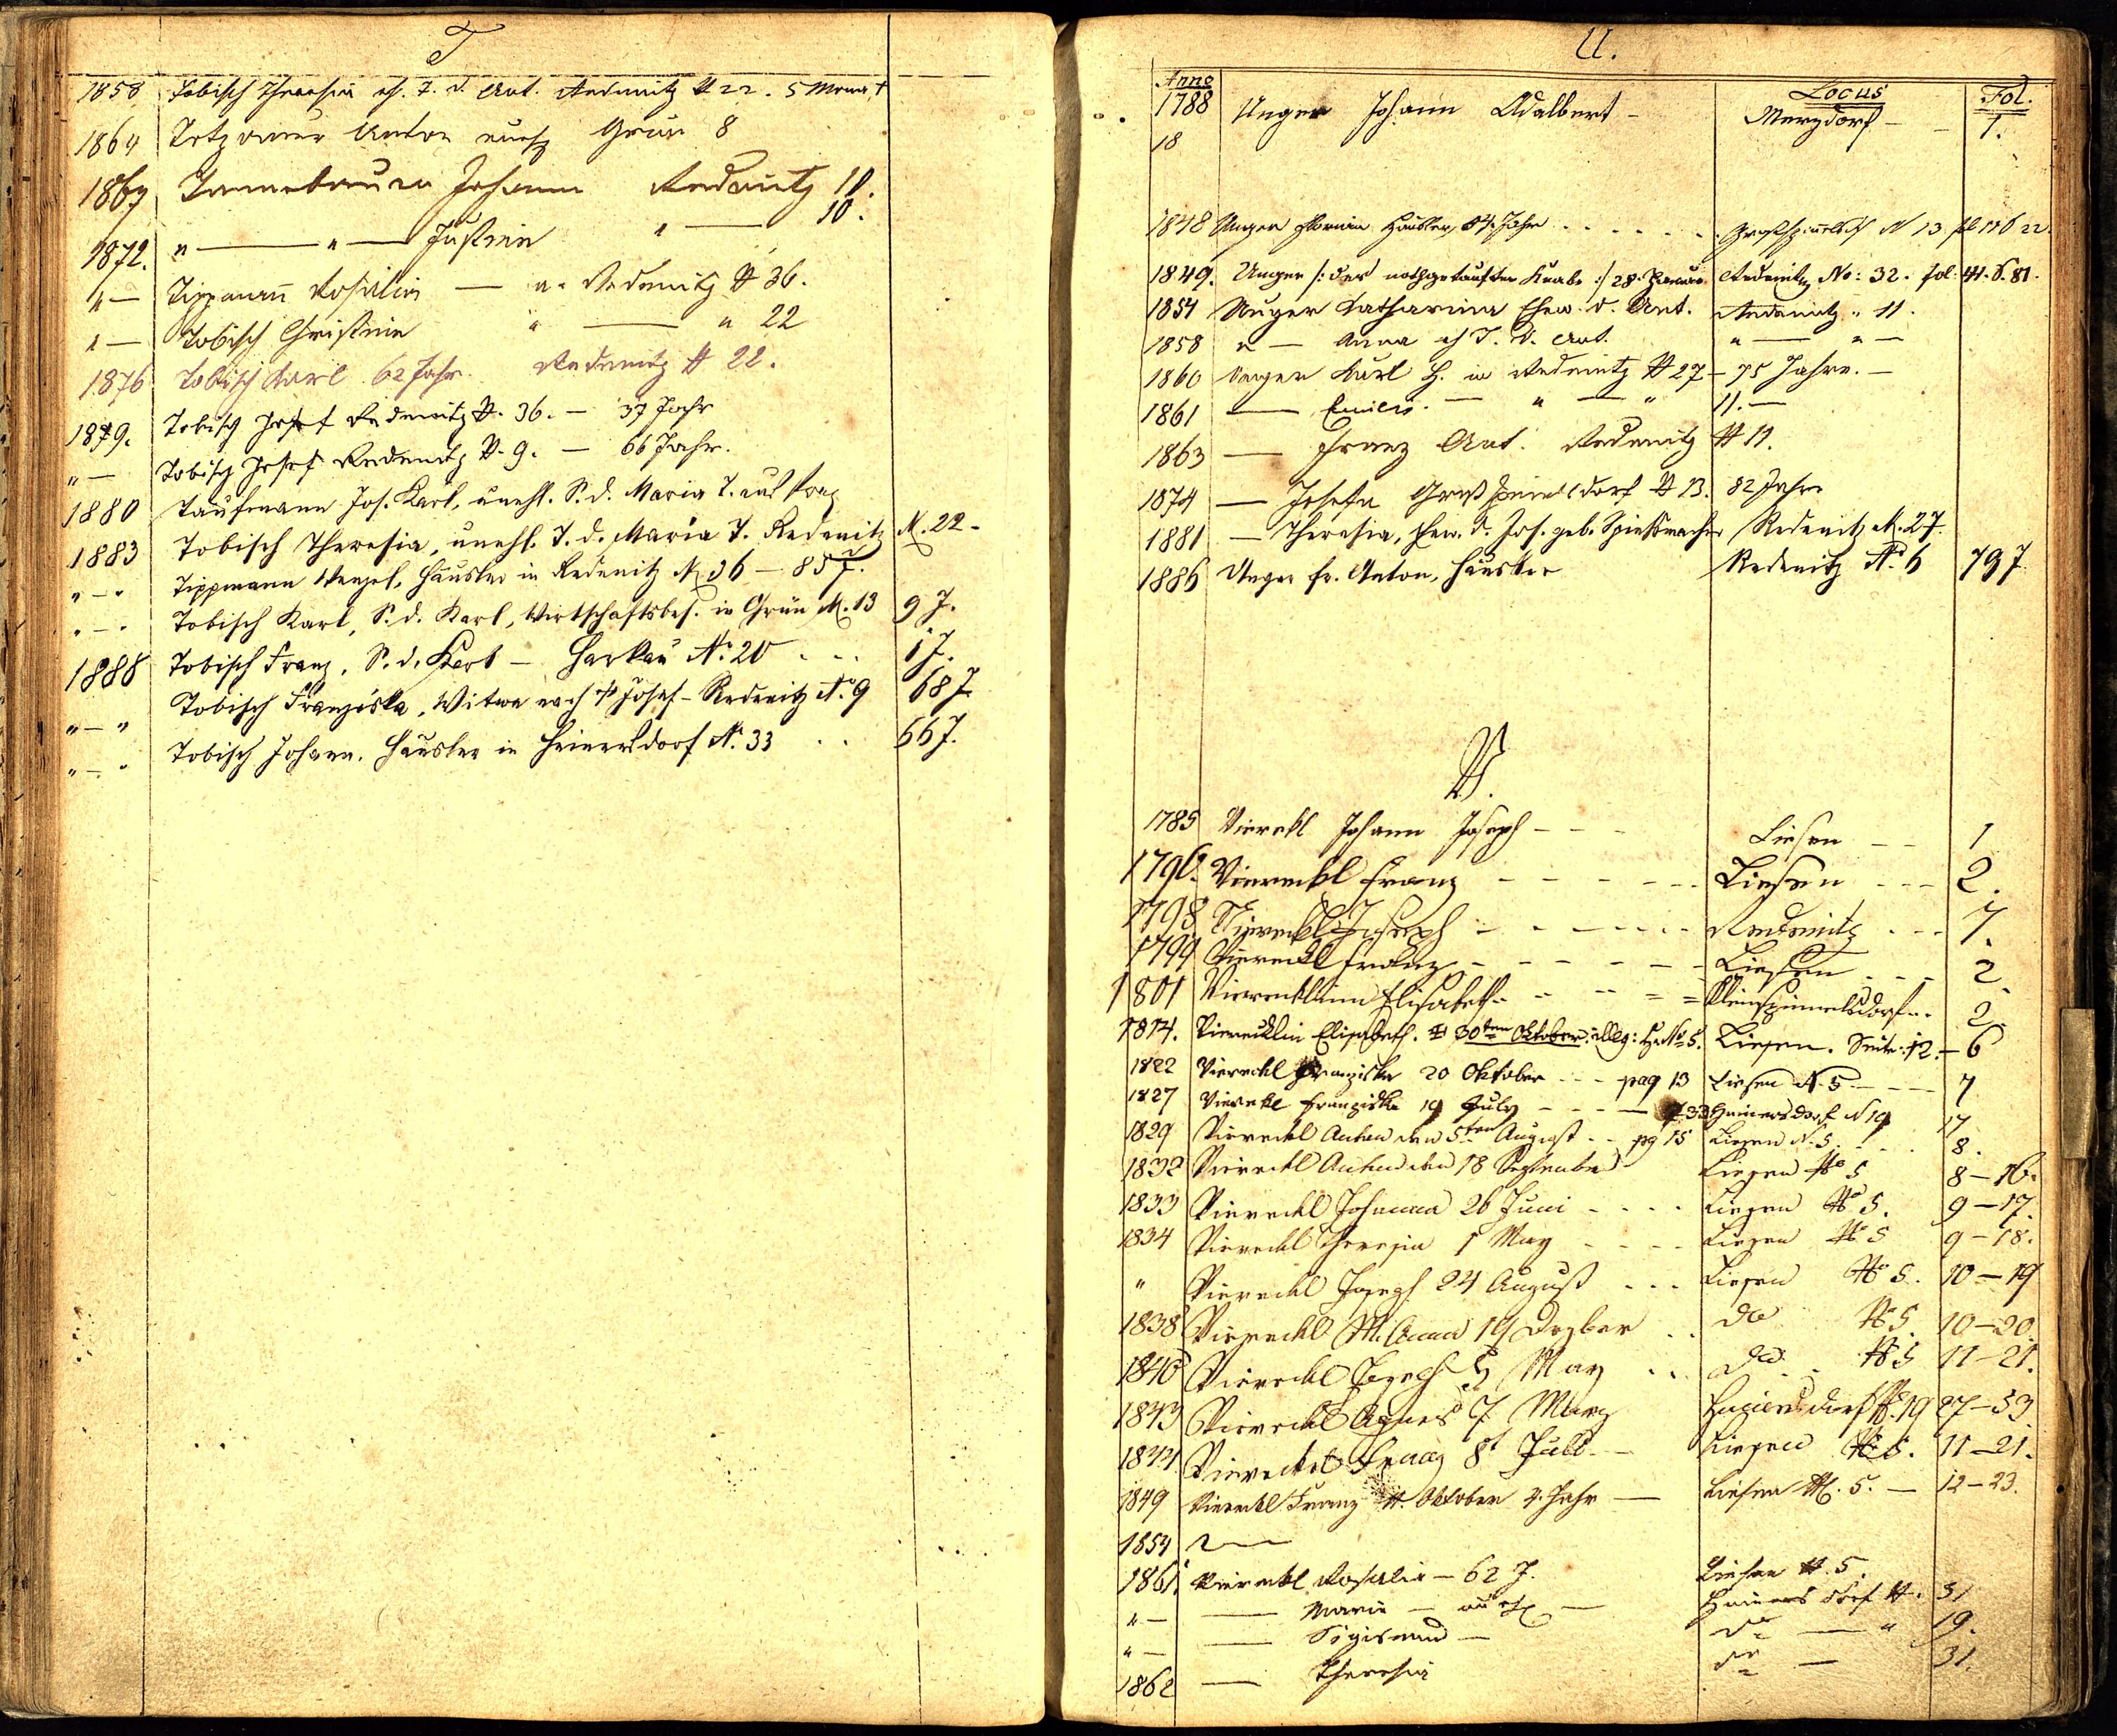 T
1858 Tobisch Theresia eh. T. d. Ant. Redenitz N 22. 5 Monat
1864 Anton Grün 8
1867 Johann Redenitz 11.
1872. " — " — Justina " — 10.
" — Tippmann Rosalia — a. Redenitz N 36.
" — Tobisch Christina " — " 22
1876 Tobisch Karl 62 Jahr. Redenitz N 22.
1879. Tobisch Josef Redenitz N. 36. — 37 Jahr
" — Tobisch Josef Redenitz N. 9. — 66 Jahr.
1880 Taufmann Jos. Karl, unehl. S. d. Maria T. aus Prag
1883 Tobisch Theresia, unehl. T. d. Maria T. Redenitz N. 22 -
" — " Tippmann Wenzel, Häusler in Redenitz N 36 — 85 J.
" — " Tobisch Karl, S. d. Karl, Wirtschaftsbes. in Grün N. 13 9 J.
1888 Tobisch Franz, S. d. Karl — Harkau No. 20 . . . 1 J.
" — " Tobisch Franziska, Witwe nach † Josef - Redenitz No. 9 68 J.
" — " Tobisch Johann. Häusler in Heinersdorf No. 33 . . 66 J.
U.
Anno Locus Fol.
1788 Unger Johann Adalbert — Merzdorf — 1.
18
1848 Unger Häusler, 54 Jahr . . . . . N 13 22.
1849. Unger /: der nothgetaufter Knabe :/ 28. Januar Redenitz No: 32. fol: 41. S. 81.
1854 Unger Katharina Ehew. d. Ant. Redenitz " 11.
1858 " — Anna eh T. d. Ant. " — " —
1860 Unger Karl H. in Redenitz N 27 — 75 Jahre. —
1861 — Emilie. — " — " 11. —
1863 — Franz Ant. Redenitz N 11.
1874 — Josefa N 13. 82 Jahre
1881 — Theresia, Ehew. d. Jos. geb. Spießmacher Redenitz N. 27.
1886 Unger fr. Anton, Häusler Redenitz No. 6 79 J.
V.
1785 Vierekl Johann Joseph — — — Liesen — — 1
1796. Viereckl Franz — — — — — Liesen — — 2.
1798 Viereckl Joseph — — — — — Redenitz . . . 7.
1799 Viereckl Franz — — — — — Liesen — — 2.
1801 Elisabeth — — — — 2.
1814. Viereklin Elisabeth. 30ten Oktober: No 5. Liesen. Seite: 12. — 6
1822 Viereckl Franziska 20 Oktober — — pag 13 Liesen N. 5 — — — 7
1827 Vierekl Franziska 19 July — — — 33 Heinersdorf N 19 17
1829 Viereckl Anton den 5ten August . . pg 15 Liesen N. 5. . . . 8.
1832 Viereckl Anton den 18 September Liesen No 5 8 — 16.
1833 Viereckl Johanna 26 Juni . . . . Liesen No 5. 9 — 17.
1834 Viereckl Theresia 1 May . . . . Liesen No 5 9 — 18.
" Viereckl Joseph 24 August . . . Liesen No 5. 10 — 19
1838 Viereckl M. Anna 19 Dezber . . do No 5 10 — 20.
1840 Viereckl Joseph 5 May . . . do. No 5 11 — 21.
1843 Viereckl Agnes 7 März Heinersdorf N. 19 27 — 53.
1844 Viereckl Franz 8t Juli — Liesen No 5. 11 — 21.
1849 Viereckl Franz 4. Oktober 4. Jahr — Liesen N. 5. — 12 — 23.
1854
1861. Vierekl Rosalia — 62 J. Liesen N. 5.
" — — Marie — Heinersdorf N. 31
" — — Sigismund — do — " 19.
1862 — Theresia do — 31.